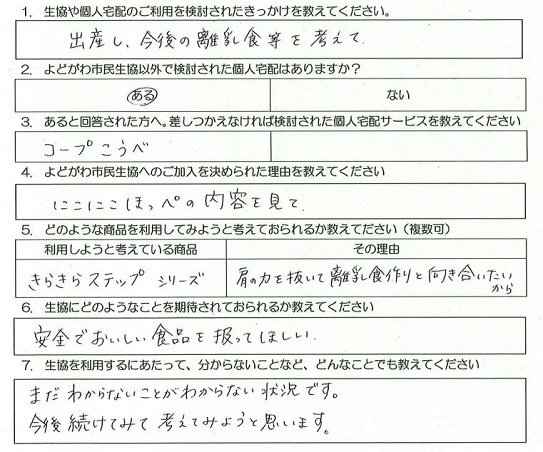 1. 生協や個人宅配のご利用を検討されたきっかけを教えてください。
出産し、今後の離乳食等を考えて
2. よどがわ市民生協以外で検討された個人宅配はありますか？
ある ない
3. あると回答された方へ。差しつかえなければ検討された個人宅配サービスを教えてください
コープこうべ
4. よどがわ市民生協へのご加入を決められた理由を教えてください
にこにこほっぺの内容を見て
5. どのような商品を利用してみようと考えておられるか教えてださい（複数可）
利用しようと考えている商品 その理由
きらきらステップ シリーズ 肩の力を抜いて離乳食作りと向き合いたい
から
6. 生協にどのようなことを期待されておられるか教えてください
安全でおいしい食品を扱ってほしい.
7. 生協を利用するにあたって、分からないことなど、どんなことでも教えてください
まだわからないことがわからない状況です。
今後続けてみて考えてみようと思います。